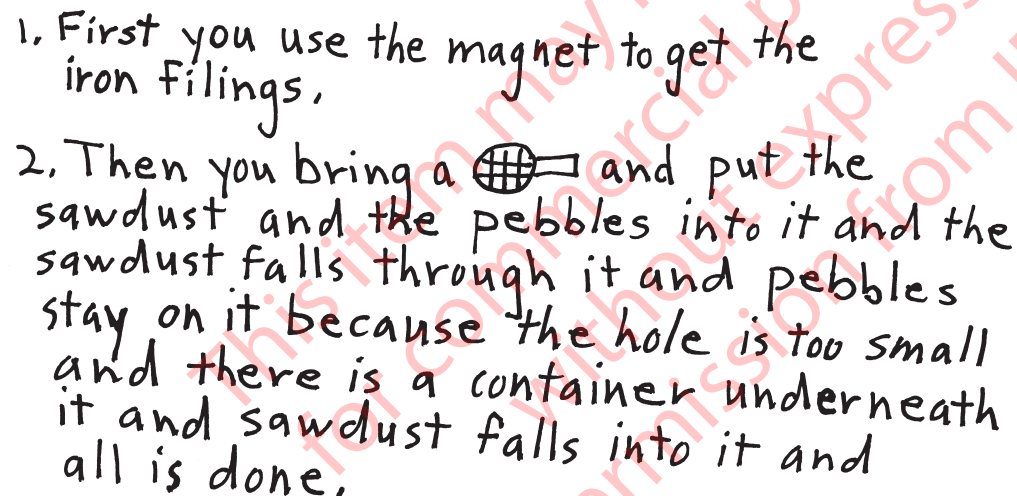 1. First you use the magnet to get the
iron filings.
2. Then you bring a and put the
sawdust and the pebbles into it and the
sawdust falls through it and pebbles
stay on it because the hole is too small
and there is a container underneath
it and sawdust falls into it and
all is done.
This item may
for commercial p
without express
rmission from u